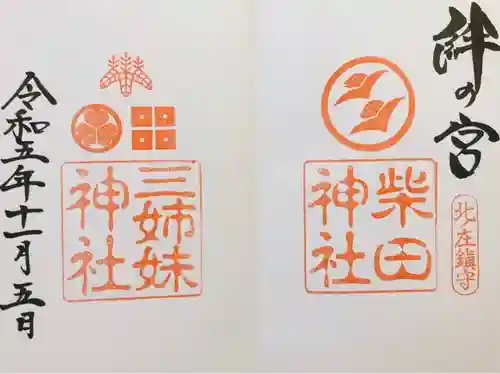 絆の宮
北ノ庄鎮守
柴田
神社
三姉妹
神社
令和五年十一月五日